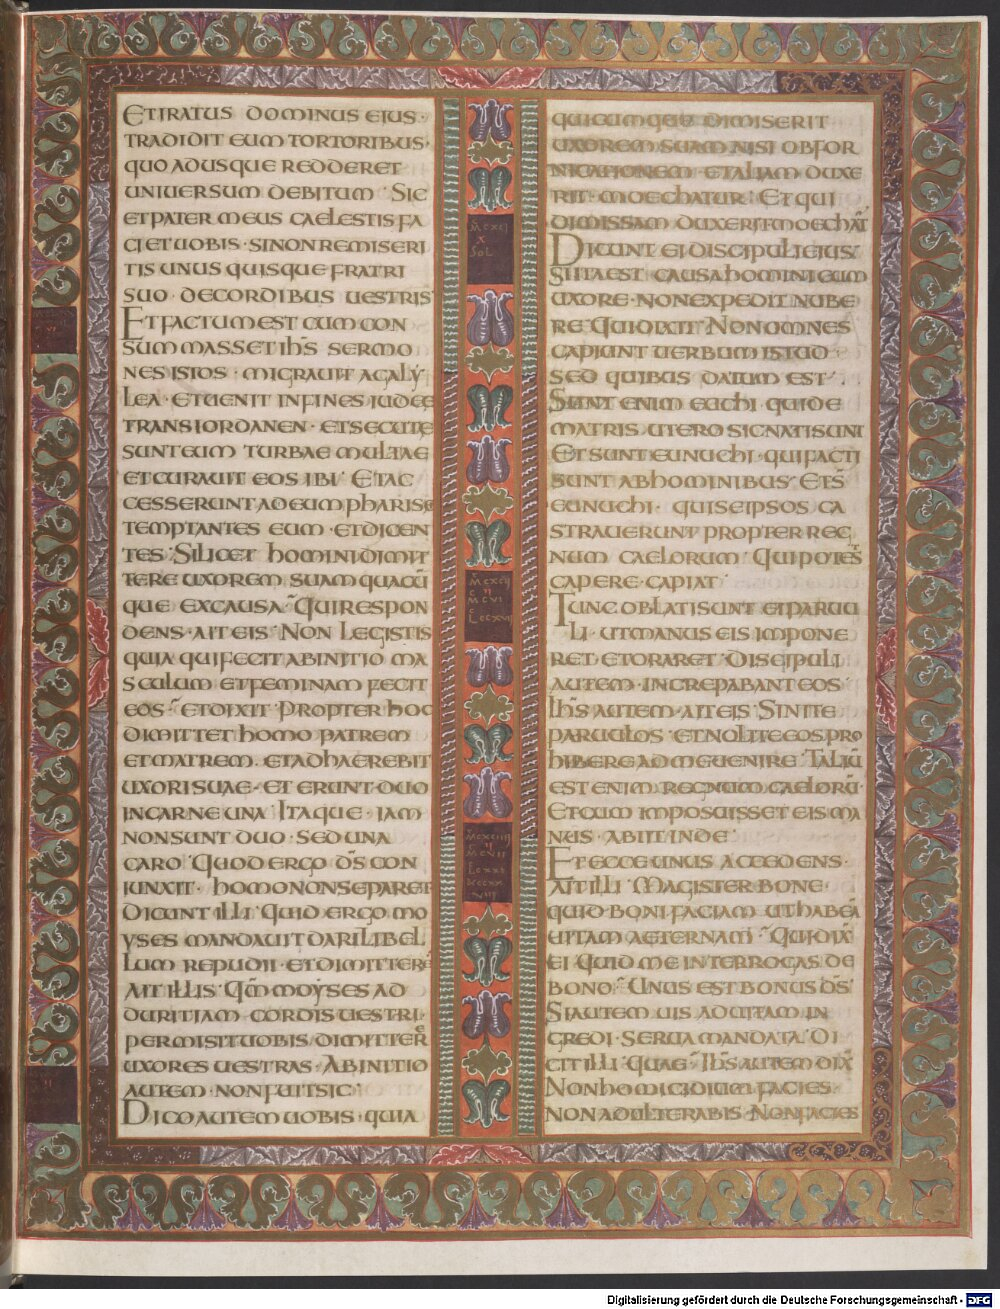 ETIRATUS DOMINUS EIUS·
TRADIDIT EUM TORTORIBUS·
QUOADUSQUE REDDERET
UNIUERSUM DEBITUM· SIC
ETPATER MEUS CAELESTIS FA
CIETUOBIS· SINONREMISERI
TIS UNUSQUISQUE FRATRI
SUO· DECORDIBUS UESTRIS
ETFACTUMEST CUM CON
SUMMASSET IHS SERMO
NES ISTOS· MIGRAUIT AGALY
LEA· ETUENIT INFINES IUDEE
TRANSIORDANEN· ETSECUTE
SUNTEUM TURBAE MULTAE
ETCURAUIT EOS IBI· ETAC
CESSERUNT ADEUM PHARISE
TEMPTANTES EUM· ETDICEN
TES· SILICET HOMINI DIMIT
TERE UXOREM SUAM QUACŪ
QUE EXCAUSA· QUIRESPON
DENS· AITEIS· NON LEGISTIS
QUIA QUIFECIT ABINITIO MA
SCULUM ETFEMINAM FECIT
EOS· ETDIXIT· PROPTER HOC
DIMITTET HOMO PATREM
ETMATREM· ETADHAEREBIT
UXORISUAE· ET ERUNT· DUO
INCARNE UNA· ITAQUE· IAM
NONSUNT DUO· SED UNA
CARO· QUOD ERGO DS CON
IUNXIT· HOMO NONSEPARET
DICUNT ILLI· QUID ERGO MO
YSES MANDAUIT DARILIBEL
LUM REPUDII· ETDIMITTERE
AIT ILLIS· QM̄ MOYSES AD
DURITIAM CORDIS UESTRI·
PERMISIT UOBIS DIMITTERE
UXORES UESTRAS· ABINITIO
AUTEM· NONFUIT SIC·
DICO AUTEM UOBIS· QUIA
MCXCII
X
SOL
MCXCII
MCVI
LCCXVII
MCXCIIII
MCVII
QUICUMQUE DIMISERIT
UXOREM SUAM NISI OBFOR
NICATIONEM· ETALIAM DUXE
RIT· MOECHATUR· ETQUI
DIMISSAM DUXERIT MOECHAT̄
DICUNT EI DISCIPULI EIUS·
SI ITA EST· CAUSA HOMINI CUM
UXORE· NONEXPEDIT NUBE
RE· QUI DIXIT· NONOMNES
CAPIUNT UERBUM ISTUD·
SED QUIBUS DATUM EST·
SUNT ENIM EUCHI QUI DE
MATRIS UTERO SIC NATISUNT
ETSUNT EUNUCHI· QUIFACTI
SUNT ABHOMINIBUS· ETS̄
EUNUCHI· QUI SEIPSOS CA
STRAUERUNT PROPTER REG
NUM CAELORUM· QUI POTEST
CAPERE· CAPIAT·
TUNC OBLATI SUNT EI PARUU
LI· UT MANUS EIS IMPONE
RET· ETORARET· DISCIPULI
AUTEM· INCREPABANT EOS·
IHS AUTEM· AIT EIS· SINITE
PARUULOS· ETNOLITE EOS PRO
HIBERE AD ME UENIRE· TALIŪ
EST ENIM· REGNUM CAELORŪ·
ETCUM IMPOSUISSET EIS MA
NUS· ABIIT INDE·
ETECCE UNUS ACCEDENS·
AIT ILLI· MAGISTER BONE·
QUID BONI FACIAM UT HABEA
UITAM AETERNAM· QUI DIX
EI· QUID ME INTERROGAS DE
BONO· UNUS EST BONUS DS·
SI AUTEM UIS AD UITAM IN
GREDI· SERUA MANDATA· DI
CIT ILLI· QUAE· IHS AUTEM DIX
NON HOMICIDIUM FACIES·
NON ADULTERABIS· NONFACIES
Digitalisierung gefördert durch die Deutsche Forschungsgemeinschaft - DFG